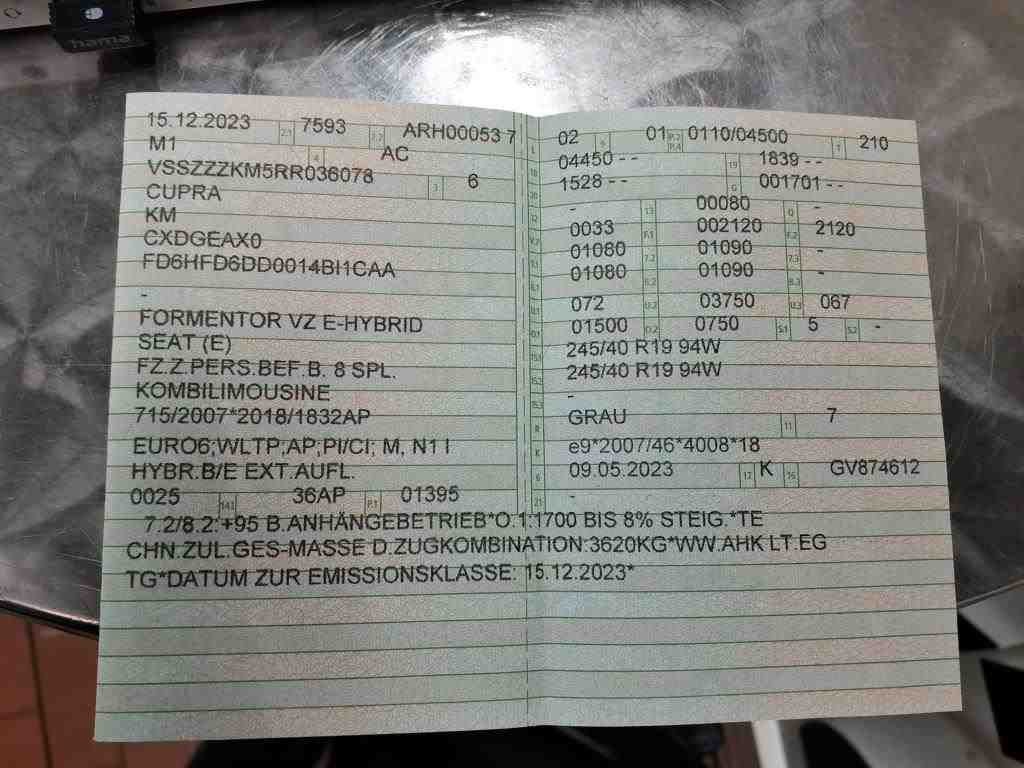 hama
15.12.2023 2.1 7593 2.2 ARH00053 7
M1 4 AC
VSSZZZKM5RR036078 3 6
CUPRA
KM
CXDGEAX0
FD6HFD6DD0014BI1CAA
-
FORMENTOR VZ E-HYBRID
SEAT (E)
FZ.Z.PERS.BEF.B. 8 SPL.
KOMBILIMOUSINE
715/2007*2018/1832AP
EURO6;WLTP;AP;PI/CI; M, N1 I
HYBR.B/E EXT.AUFL.
0025 14.1 36AP P.1 01395
L 02 9 01 P.2 P.4 0110/04500 T 210
18 04450 - - 19 1839 - -
20 1528 - - G 001701 - -
12 - 13 00080 Q -
V.7 0033 F.1 002120 F.2 2120
7.1 01080 7.2 01090 7.3 -
8.1 01080 8.2 01090 8.3 -
U.1 072 U.2 03750 U.3 067
O.1 01500 O.2 0750 S.1 5 S.2 -
15.1 245/40 R19 94W
15.2 245/40 R19 94W
15.3 -
R GRAU 11 7
K e9*2007/46*4008*18
6 09.05.2023 17 K 16 GV874612
21 -
7.2/8.2:+95 B.ANHÄNGEBETRIEB*O.1:1700 BIS 8% STEIG.*TE
CHN.ZUL.GES-MASSE D.ZUGKOMBINATION:3620KG*WW.AHK LT.EG
TG*DATUM ZUR EMISSIONSKLASSE: 15.12.2023*